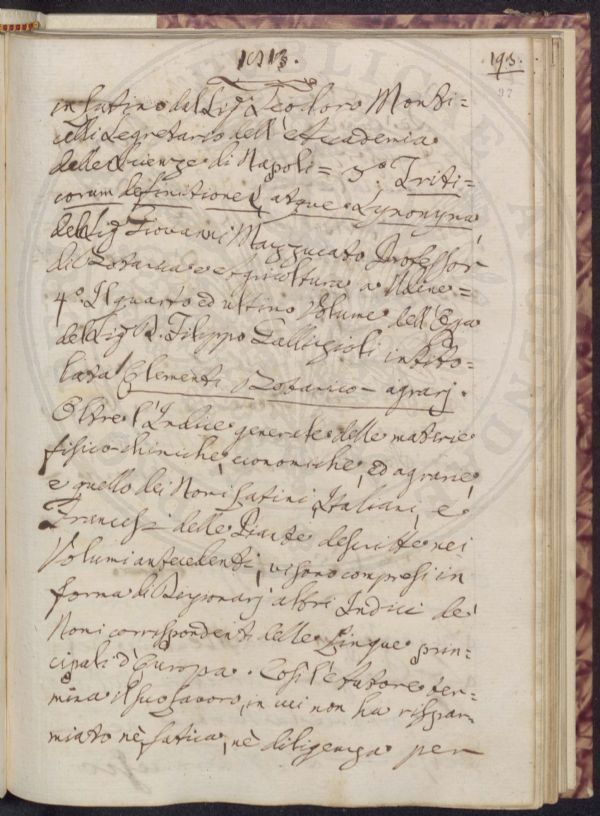 1813.
193.
97
in Latino dal Sig Teodoro Monti=
celli Segretario dell'Accademia
delle Scienze di Napoli = 3.° Triti=
corum definitiones atque Synonyma
del Sig Giovanni Mazzucato Professor
di Botanica e Agricoltura a Udine =
4.° Il quarto ed ultimo Volume dell'Opa
del Sig D. Filippo Gallizioli intito=
lata Elementi Botanico-agrarj.
Oltre l'Indice generale delle materie
fisico-chimiche, economiche, ed agrarie
e quello dei Nomi Latini, Italiani, e
Francesi delle Piante descritte nei
Volumi antecedenti, vi sono compresi in
forma di Dizionarj altri Indici de'
Nomi corrispondenti delle Lingue prin=
cipali d'Europa. Così l'Autore ter=
mina il suo lavoro, in cui non ha rispar
miato nè fatica, nè diligenza per